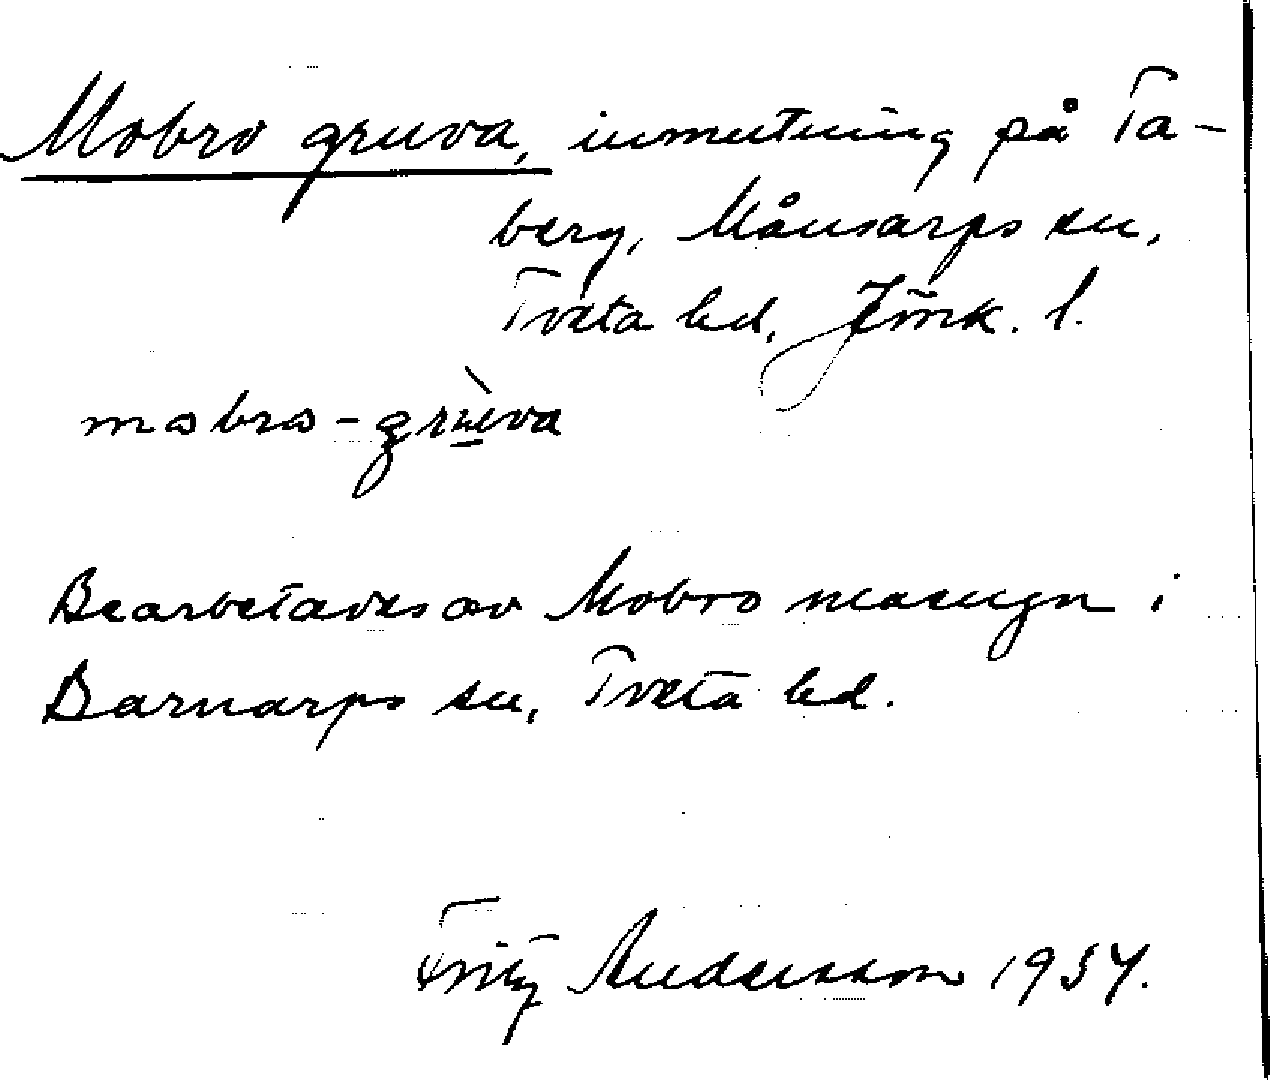 Mobro gruva, inmutning på Ta-
berg, Månsarps sn,
Tveta hd, Jönk. l.
mobro-grùva
Bearbetades av Mobro masugn i
Barnarps sn, Tveta hd.
Fritz Andersson 1954.